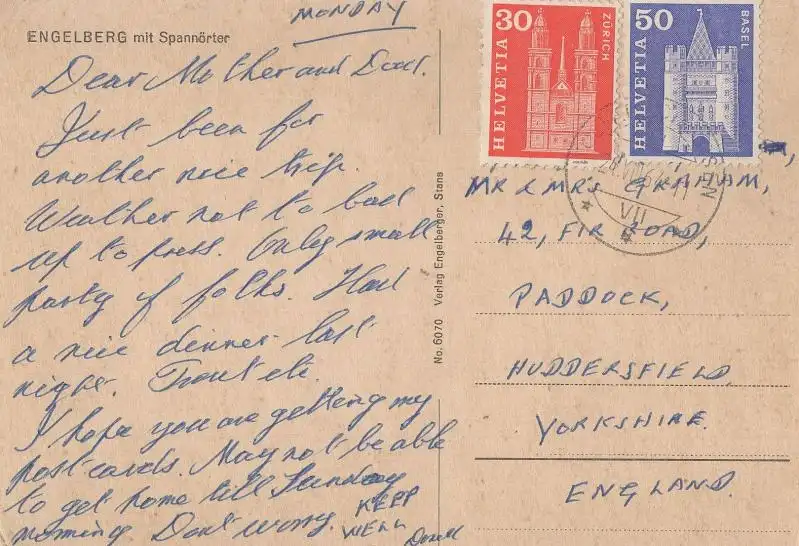 MONDAY
ENGELBERG mit Spannörter
Dear Mother and Dad.
Just been for
another nice trip.
Weather not to bad
up to press. Only small
party of folks. Had
a nice dinner last
night. Trout etc.
I hope you are getting my
postcards. May not be able
to get home till Sunday
morning Dont worry. KEEP
WELL
No. 6070 Verlag Engelberger, Stans
30
HELVETIA
ZÜRICH
50
HELVETIA
BASEL
VII
MR & MR'S GRAHAM,
42, FIR ROAD,
PADDOCK,
HUDDERSFIELD
YORKSHIRE.
ENGLAND.